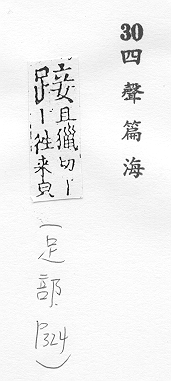 30
四聲篇海
踥
且獵切丨
丨往来皃
(足部 P324)